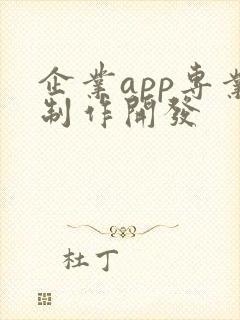 企業app專業
制作開發
杜丁